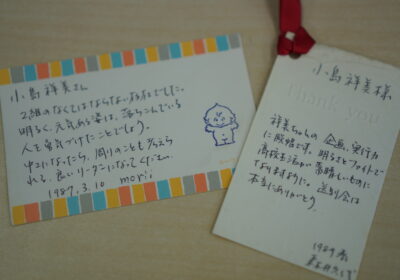 小島祥美さん
2組のなくてはならない存在でした。
明るく、元気ある姿は、落ちこんでいる
人を勇気づけたことでしょう。
中2になったら、周りのことも考えら
れる、良いリーダーになってください。
1987.3.10 morii
小島祥美様
Thank you
祥美ちゃんの企画、実行力
に脱帽です。明るさとファイトで
高校生活が素晴しいものに
なりますように。送別会は
本当にありがとう。
1989 春